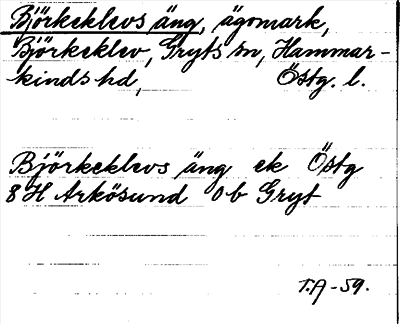 Björkeklevs äng, ägomark,
Björkeklev, Gryts sn, Hammar-
kinds hd, Östg. l.
Björkeklevs äng ek Östg
8 H Arkösund 0b Gryt
T.A-59.